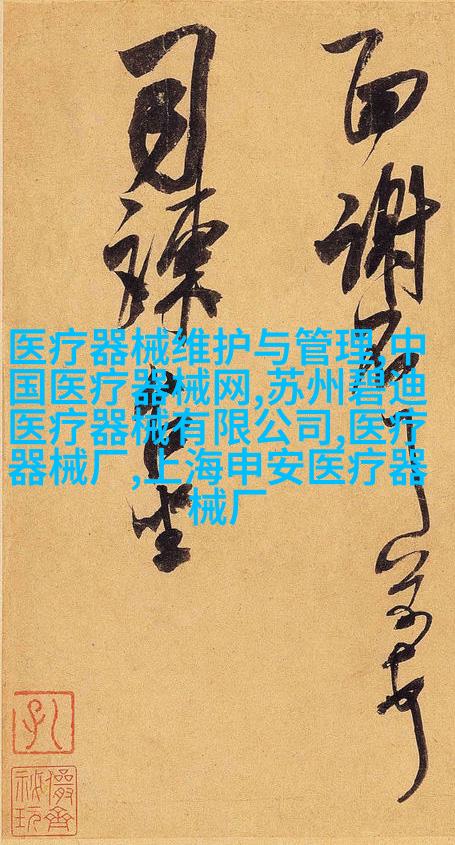 医疗器械维护与管理,中
国医疗器械网,苏州碧迪
医疗器械有限公司,医疗
器械厂,上海申安医疗器
械厂
面謝
司諫 坐
儼齋秘玩